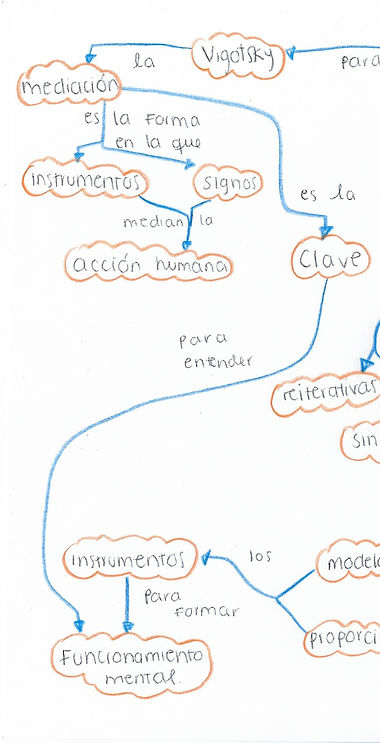 Vigotsky
la
para
mediación
es la forma
en la que
instrumentos
signos
median la
acción humana
es la
Clave
para
entender
reiterativas
sin
instrumentos
los
modelo
para
formar
proporci
Funcionamiento
mental.